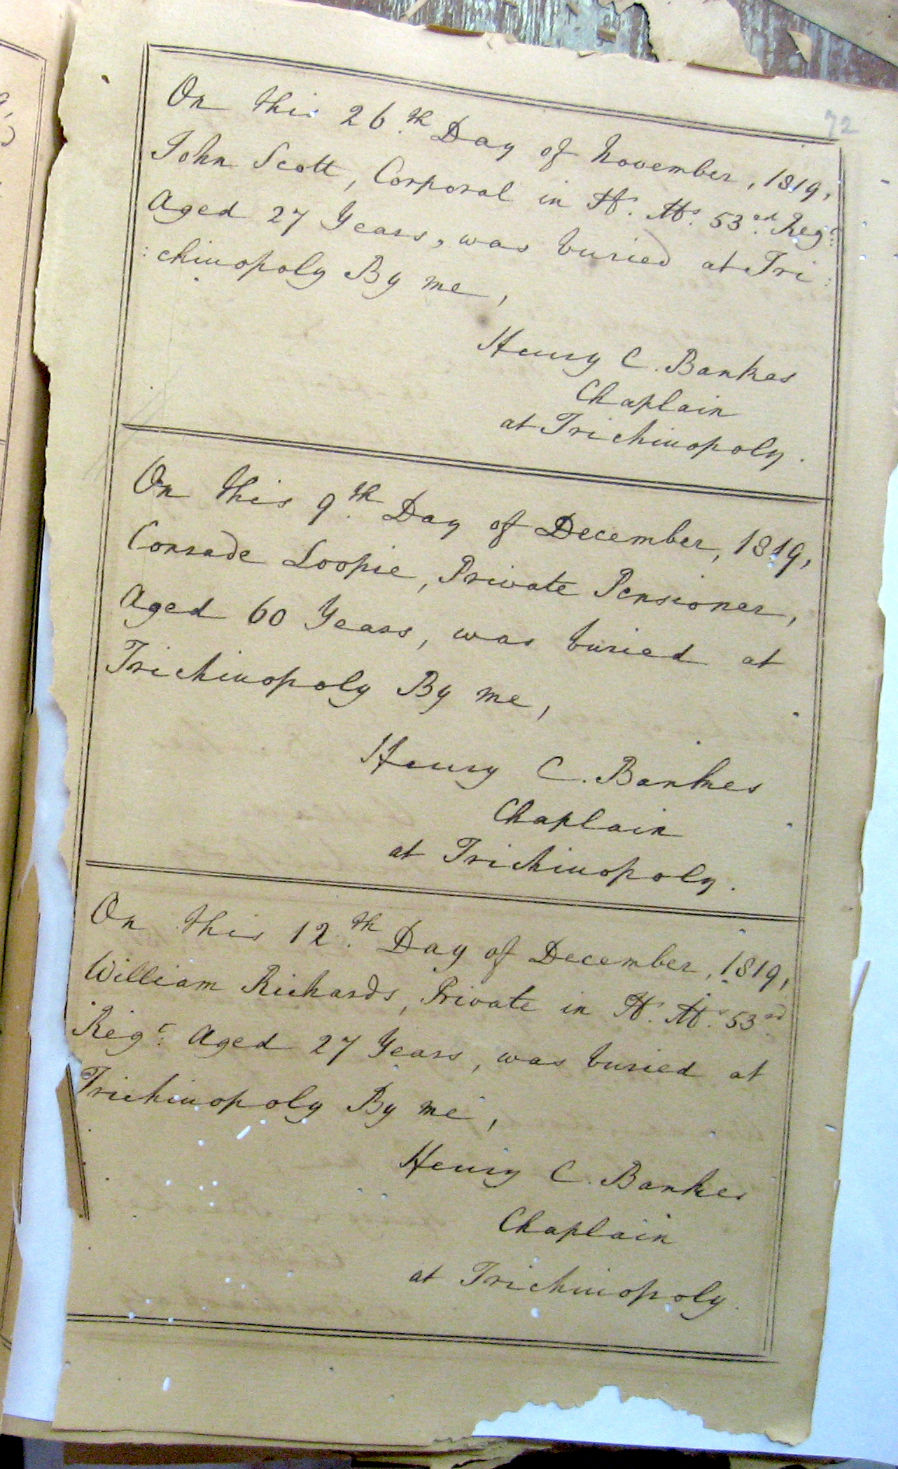 72
On this 26.th Day of November, 1819,
John Scott, Corporal in H. M.s 53.rd Reg.t
Aged 27 Years, was buried at Tri:
:chinopoly By me,
Henry C. Bankes
Chaplain
at Trichinopoly.
On this 9.th Day of December, 1819,
Conrade Loopie, Private Pensioner,
Aged 60 Years, was buried at
Trichinopoly By me,
Henry C. Bankes
Chaplain
at Trichinopoly.
On this 12.th Day of December, 1819,
William Richards, Private in H. M.s 53.rd
Reg.t Aged 27 Years, was buried at
Trichinopoly By me,
Henry C. Bankes
Chaplain
at Trichinopoly.